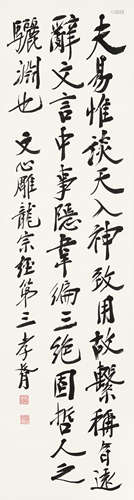 夫易惟談天入神致用故繫稱旨遠
辭文言中事隱韋編三絕固哲人之
驪淵也 文心雕龍宗經第三 孝胥